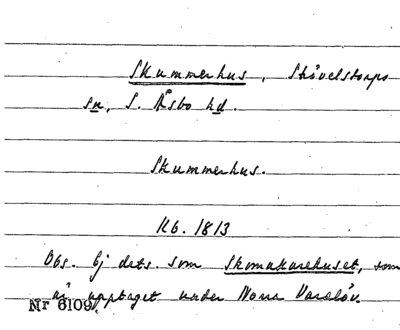 Skummerhus, Stövelstorps
sn, S. Åsbo hd.
Skummerhus.
Kb. 1813
Obs. Ej dets. som Skomakarehuset, som
är upptaget under Norra Varalöv.
Nr 6109